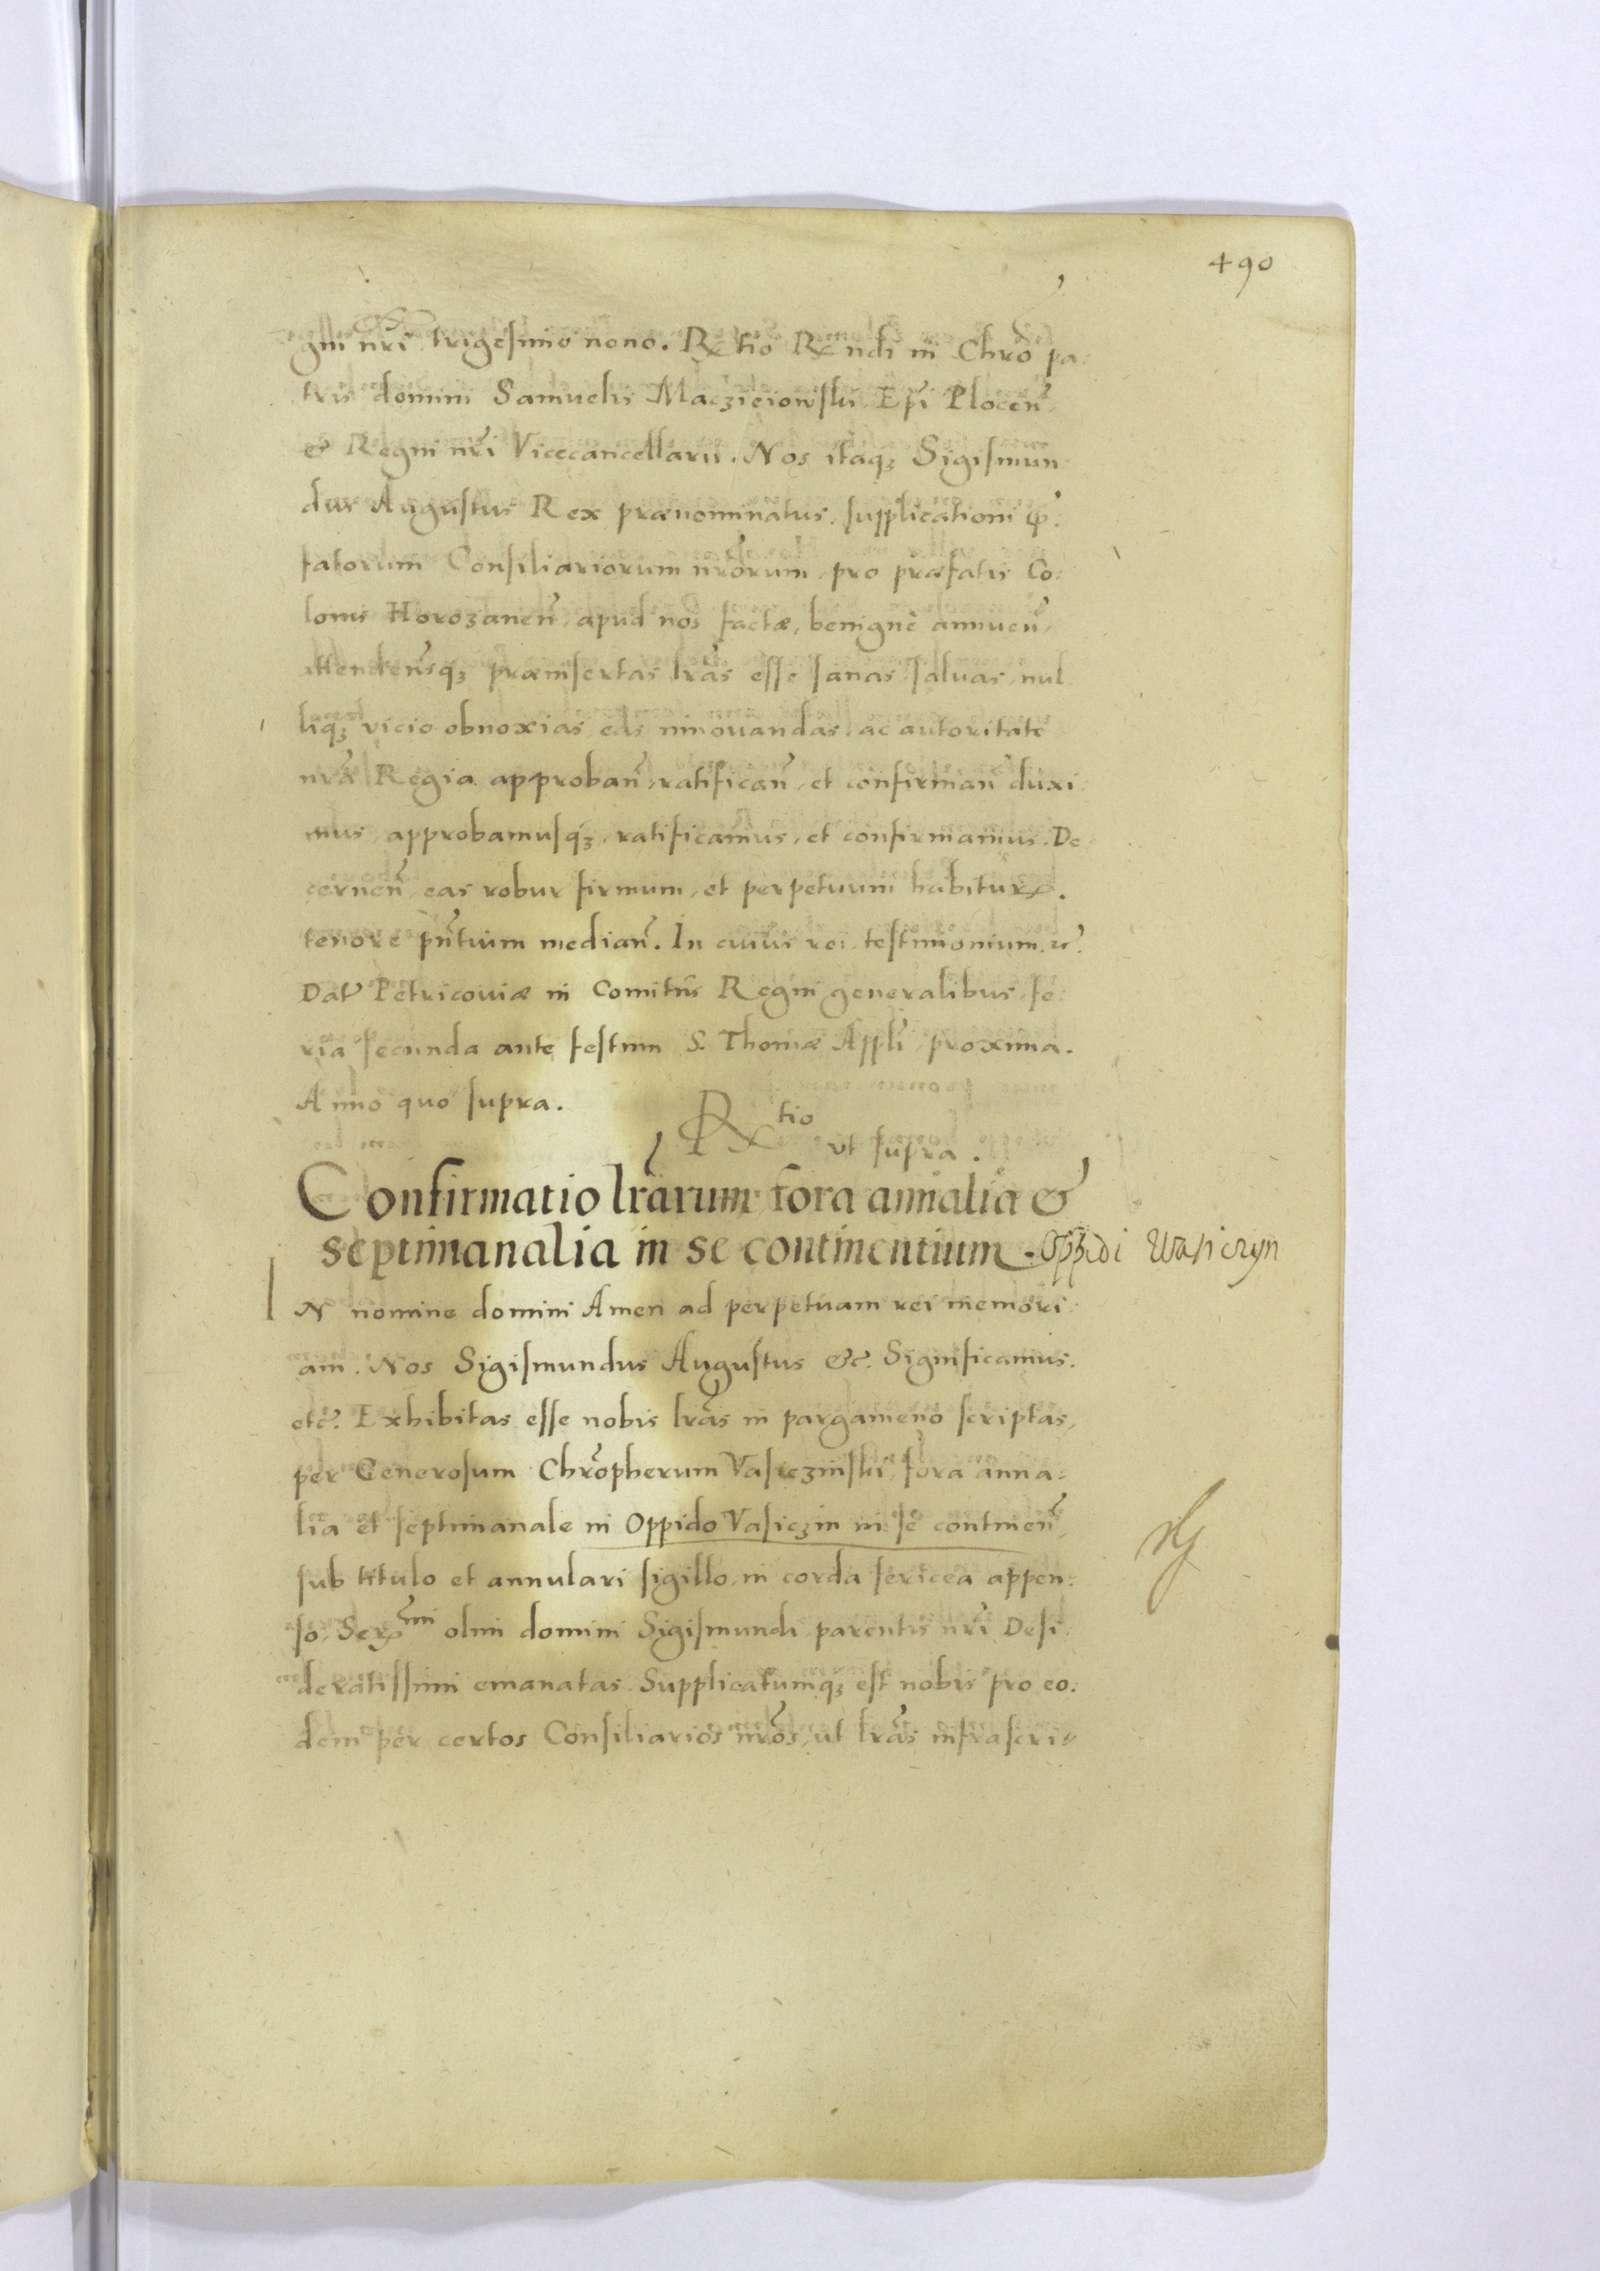 490
gni nri trigesimo nono. Rtio Rndi in Chro pa:
tris domini Samuelis Macziciowski Epi Plocen̄
& Regni nri Vicecancellarii. Nos itaqȝ Sigismun
dus Augustus Rex prænominatus, supplicationi p̄:
fatorum Consiliariorum nrorum, pro præfatis Co:
lonis Horozanen̄, apud nos factæ, benignè annuen̄,
attendensqȝ præinsertas lras esse sanas, saluas, nul
liqȝ vicio obnoxias, eas innouandas, ac autoritate
nra Regia approban̄, ratifican̄, et confirman̄ duxi:
mus, approbamusqȝ, ratificamus, et confirmamus. De
cernen̄ eas robur firmum, et perpetuum habitur.
tenore pn̄tium median̄. In cuius rei testimonium. &c.
Dat Petricouiæ in Comitiis Regni generalibus, fe:
ria secunda ante festum S. Thomæ Appli proxima.
Anno quo supra.
Rtio
vt supra.
Confirmatio lrarum fora annalia &
septimanalia in se continentium. Oppidi Wasiczyn
IN nomine domini Amen ad perpetuam rei memori:
am. Nos Sigismundus Augustus &c. Significamus.
etc. Exhibitas esse nobis lras in pargameno scriptas,
per Generosum Chropherum Vasiczinski, fora anna:
lia et septimanale in Oppido Vasiczin in se continen̄,
sub titulo et annulari sigillo, in corda sericea appen:
so, Sermi olim domini Sigismundi parentis nri Desi:
deratissimi emanatas. Supplicatumqȝ est nobis pro eo:
dem per certos Consiliarios nros, ut lras infrascri